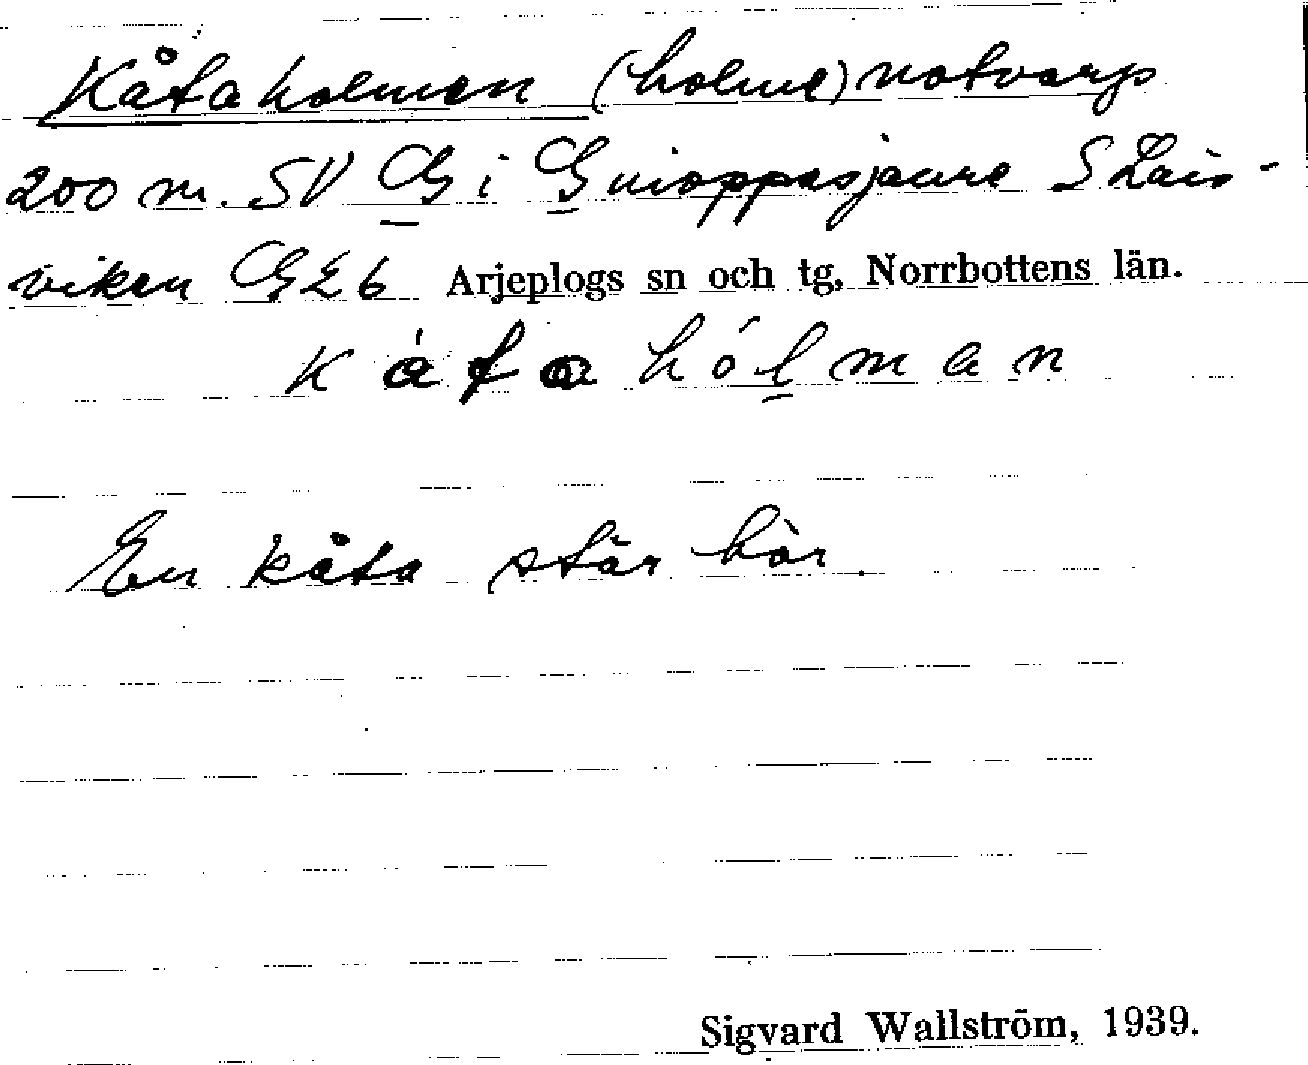 Kåtaholmen (holme) notvarp
200 m. SV G i Guioppasjaure S Lais-
viken G E 6 Arjeplogs sn och tg, Norrbottens län.
k å t a h ó l m a n
En kåta står här.
Sigvard Wallström, 1939.